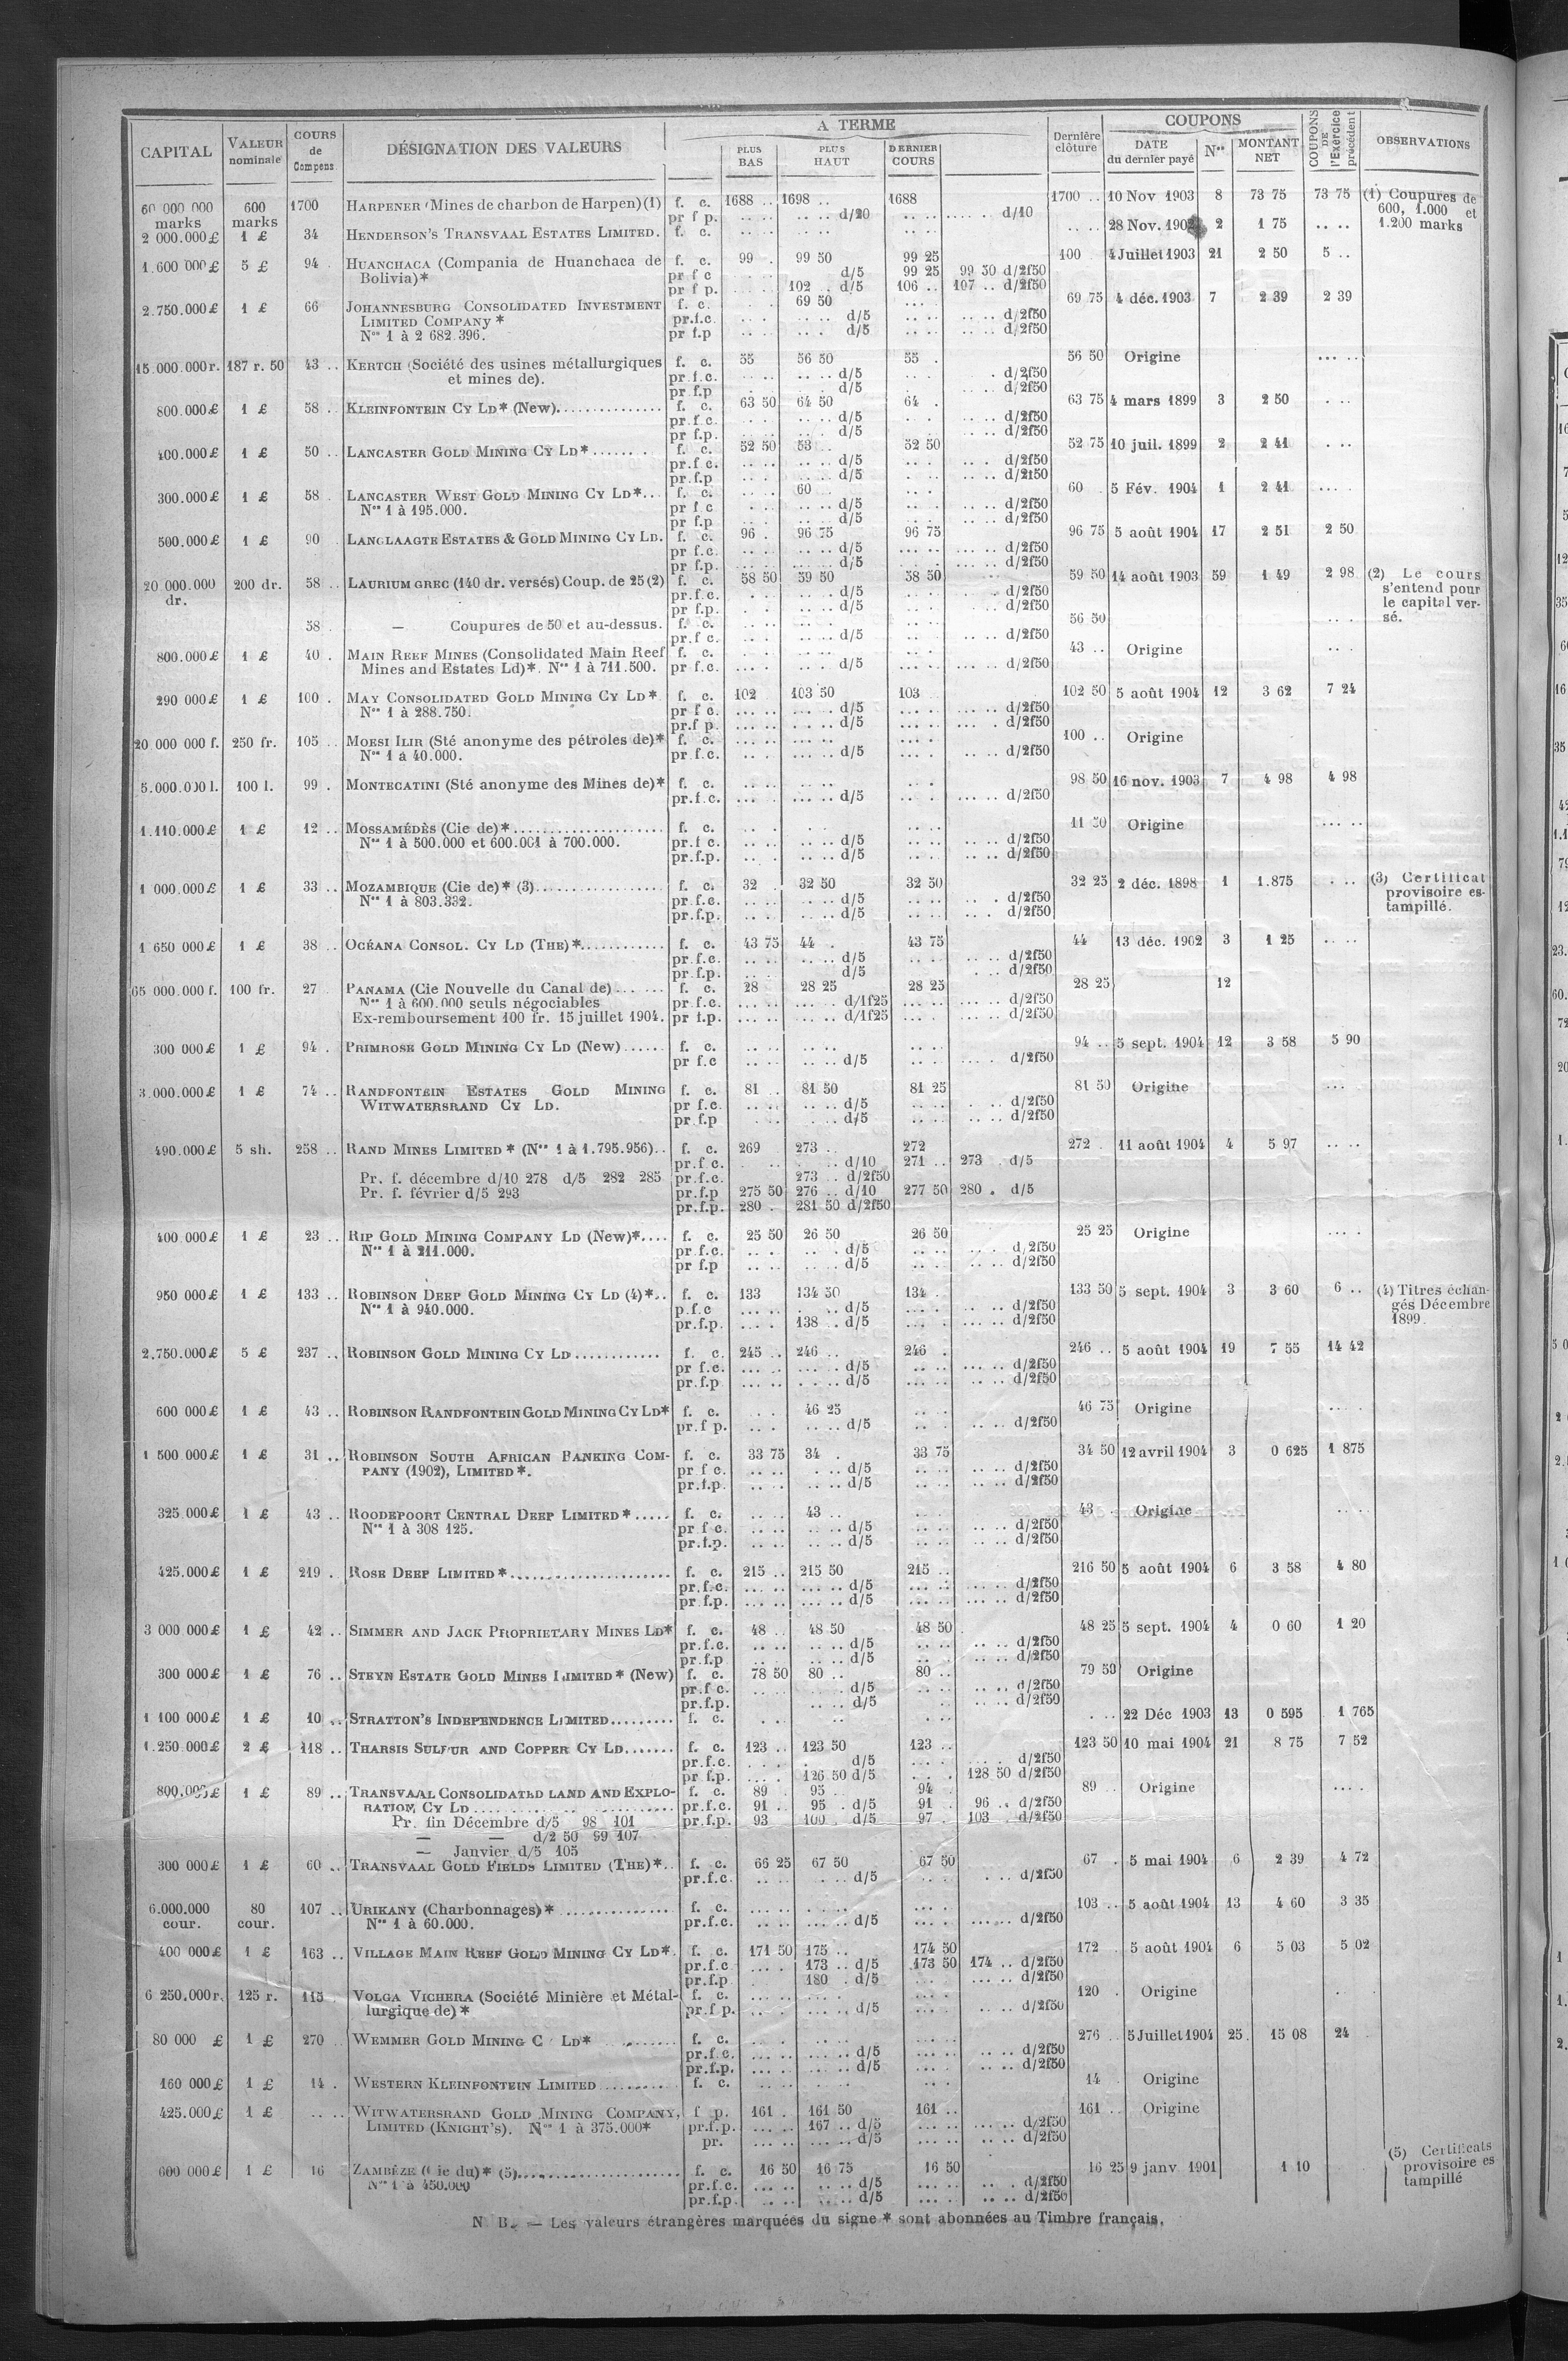 CAPITAL | VALEUR nominale | COURS de Compens | DÉSIGNATION DES VALEURS | A TERME | PLUS BAS | PLUS HAUT | DERNIER COURS | Dernière clôture | COUPONS | DATE du dernier payé | Nos | MONTANT NET | COUPONS DE l'Exercice précédent | OBSERVATIONS
60 000 000 marks | 600 marks | 1700 | HARPENER (Mines de charbon de Harpen) (1) | f. c. | 1688 .. | 1698 .. | 1688 | 1700 .. | 10 Nov 1903 | 8 | 73 75 | 73 75 | (1) Coupures de 600, 1.000 et 1.200 marks
pr f p. | .. .. | .. .. d/20 | .. .. | .. .. d/10
2 000.000 £ | 1 £ | 34 | HENDERSON'S TRANSVAAL ESTATES LIMITED. | f. c. | .. .. | 28 Nov. 1902 | 2 | 1 75 | .. ..
1.600 000 £ | 5 £ | 94 | HUANCHACA (Compania de Huanchaca de | f. c. | 99 . | 99 50 | 99 25 | 100 | 4 Juillet 1903 | 21 | 2 50 | 5 ..
Bolivia)* | pr f c | d/5 | 99 25 | 99 50 d/2f50
pr f p. | 102 .. d/5 | 106 .. | 107 .. d/2f50
2.750.000 £ | 1 £ | 66 | JOHANNESBURG CONSOLIDATED INVESTMENT | f. c. | 69 50 | .. .. | 69 75 | 4 déc. 1903 | 7 | 2 39 | 2 39
LIMITED COMPANY * | pr.f.c. | d/5 | d/2f50
Nos 1 à 2 682.396. | pr f.p | d/5 | d/2f50
15.000.000 r. | 187 r. 50 | 43 .. | KERTCH (Société des usines métallurgiques | f. c. | 55 | 56 50 | 55 . | 56 50 | Origine | .. ..
et mines de). | pr.f.c. | d/5 | d/2f50
pr f.p | d/5 | d/2f50
800.000 £ | 1 £ | 58 .. | KLEINFONTEIN CY LD* (New). | f. c. | 63 50 | 64 50 | 64 . | 63 75 | 4 mars 1899 | 3 | 2 50
pr.f.c. | d/5 | d/2f50
pr f.p. | d/5 | d/2f50
400.000 £ | 1 £ | 50 .. | LANCASTER GOLD MINING CY LD* | f. c. | 52 50 | 53 .. | 52 50 | 52 75 | 10 juil. 1899 | 2 | 2 41
pr.f.c. | d/5 | d/2f50
pr.f.p | d/5 | d/2f50
300.000 £ | 1 £ | 58 . | LANCASTER WEST GOLD MINING CY LD* | f. c. | 60 | 60 | 5 Fév. 1904 | 1 | 2 41
Nos 1 à 195.000. | pr f c | d/5 | d/2f50
pr f.p | d/5 | d/2f50
500.000 £ | 1 £ | 90 | LANGLAAGTE ESTATES & GOLD MINING CY LD. | f. c. | 96 . | 96 75 | 96 75 | 96 75 | 5 août 1904 | 17 | 2 51 | 2 50
pr f.c. | d/5 | d/2f50
pr f.p. | d/5 | d/2f50
20 000.000 dr. | 200 dr. | 58 .. | LAURIUM GREC (140 dr. versés) Coup. de 25 (2) | f. c. | 58 50 | 59 50 | 58 50 | 59 50 | 14 août 1903 | 59 | 1 49 | 2 98 | (2) Le cours s'entend pour le capital versé.
pr.f.c. | d/5 | d/2f50
pr f.p. | d/5 | d/2f50
58 | — Coupures de 50 et au-dessus. | f. c. | 56 50
pr.f c. | d/5 | d/2f50
800.000 £ | 1 £ | 40 . | MAIN REEF MINES (Consolidated Main Reef | f. c. | 43 .. | Origine
Mines and Estates Ld)*. Nos 1 à 711.500. | pr f.c. | d/5 | d/2f50
290 000 £ | 1 £ | 100 . | MAY CONSOLIDATED GOLD MINING CY LD* | f. c. | 102 | 103 50 | 103 | 102 50 | 5 août 1904 | 12 | 3 62 | 7 24
Nos 1 à 288.750. | pr f c. | d/5 | d/2f50
pr.f p. | d/5 | d/2f50
20 000 000 f. | 250 fr. | 105 .. | MOESI ILIR (Sté anonyme des pétroles de)* | f. c. | 100 .. | Origine
Nos 1 à 40.000. | pr f.c. | d/5 | d/2f50
5.000.000 l. | 100 l. | 99 . | MONTECATINI (Sté anonyme des Mines de)* | f. c. | 98 50 | 16 nov. 1903 | 7 | 4 98 | 4 98
pr.f.c. | d/5 | d/2f50
1.110.000 £ | 1 £ | 12 .. | MOSSAMÉDÈS (Cie de)* | f. c. | 11 50 | Origine
Nos 1 à 500.000 et 600.001 à 700.000. | pr.f c. | d/5 | d/2f50
pr.f.p. | d/5 | d/2f50
1 000.000 £ | 1 £ | 33 .. | MOZAMBIQUE (Cie de)* (3) | f. c. | 32 . | 32 50 | 32 50 | 32 25 | 2 déc. 1898 | 1 | 1.875 | (3) Certificat provisoire estampillé.
Nos 1 à 803.332. | pr.f.c. | d/5 | d/2f50
pr.f.p. | d/5 | d/2f50
1 650 000 £ | 1 £ | 38 .. | OCÉANA CONSOL. CY LD (THE)* | f. c. | 43 75 | 44 . | 43 75 | 44 | 13 déc. 1902 | 3 | 1 25
pr.f.c. | d/5 | d/2f50
pr.f.p. | d/5 | d/2f50
65 000.000 f. | 100 fr. | 27 | PANAMA (Cie Nouvelle du Canal de) | f. c. | 28 | 28 25 | 28 25 | 28 25 | 12
Nos 1 à 600.000 seuls négociables | pr.f.c. | d/1f25 | d/2f50
Ex-remboursement 100 fr. 15 juillet 1904. | pr f.p. | d/1f25 | d/2f50
300 000 £ | 1 £ | 94 . | PRIMROSE GOLD MINING CY LD (New) | f. c. | 94 .. | 5 sept. 1904 | 12 | 3 58 | 5 90
pr f.c | d/5 | d/2f50
3.000.000 £ | 1 £ | 74 .. | RANDFONTEIN ESTATES GOLD MINING | f. c. | 81 .. | 81 50 | 81 25 | 81 50 | Origine
WITWATERSRAND CY LD. | pr f.c. | d/5 | d/2f50
pr f.p | d/5 | d/2f50
490.000 £ | 5 sh. | 258 .. | RAND MINES LIMITED * (Nos 1 à 1.795.956) | f. c. | 269 | 273 .. | 272 | 272 . | 11 août 1904 | 4 | 5 97
pr.f c. | d/10 | 271 .. | 273 d/5
Pr. f. décembre d/10 278 d/5 282 285 | pr.f.c. | 273 .. d/2f50
Pr. f. février d/5 293 | pr.f.p | 275 50 | 276 .. d/10 | 277 50 | 280 . d/5
pr.f.p. | 280 . | 281 50 d/2f50
400.000 £ | 1 £ | 23 .. | RIP GOLD MINING COMPANY LD (New)* | f. c. | 25 50 | 26 50 | 26 50 | 25 25 | Origine
Nos 1 à 211.000. | pr f.c. | d/5 | d/2f50
pr f.p | d/5 | d/2f50
950 000 £ | 1 £ | 133 .. | ROBINSON DEEP GOLD MINING CY LD (4)* | f. c. | 133 | 134 50 | 134 . | 133 50 | 5 sept. 1904 | 3 | 3 60 | 6 .. | (4) Titres échangés Décembre 1899.
Nos 1 à 940.000. | p.f.c | d/5 | d/2f50
pr.f.p. | 138 .. d/5 | d/2f50
2.750.000 £ | 5 £ | 237 .. | ROBINSON GOLD MINING CY LD | f. c. | 245 .. | 246 .. | 246 . | 246 .. | 5 août 1904 | 19 | 7 55 | 14 42
pr f.c. | d/5 | d/2f50
pr.f.p | d/5 | d/2f50
600 000 £ | 1 £ | 43 .. | ROBINSON RANDFONTEIN GOLD MINING CY LD* | f. c. | 46 25 | 46 75 | Origine
pr.f p. | d/5 | d/2f50
1 500 000 £ | 1 £ | 31 .. | ROBINSON SOUTH AFRICAN BANKING COM- | f. c. | 33 75 | 34 . | 33 75 | 34 50 | 12 avril 1904 | 3 | 0 625 | 1 875
PANY (1902), LIMITED *. | pr f c. | d/5 | d/2f50
pr.f.p. | d/5 | d/2f50
325 000 £ | 1 £ | 43 .. | ROODEPOORT CENTRAL DEEP LIMITED * | f. c. | 43 .. | 43 | Origine
Nos 1 à 308 125. | pr f c. | d/5 | d/2f50
pr.f.p. | d/5 | d/2f50
425.000 £ | 1 £ | 219 . | ROSE DEEP LIMITED * | f. c. | 215 .. | 215 50 | 215 .. | 216 50 | 5 août 1904 | 6 | 3 58 | 4 80
pr.f.c. | d/5 | d/2f50
pr f.p. | d/5 | d/2f50
3 000 000 £ | 1 £ | 42 .. | SIMMER AND JACK PROPRIETARY MINES LD* | f. c. | 48 .. | 48 50 | 48 50 | 48 25 | 5 sept. 1904 | 4 | 0 60 | 1 20
pr.f.c. | d/5 | d/2f50
pr.f.p | d/5 | d/2f50
300 000 £ | 1 £ | 76 .. | STEYN ESTATE GOLD MINES LIMITED * (New) | f. c. | 78 50 | 80 .. | 80 .. | 79 50 | Origine
pr.f c. | d/5 | d/2f50
pr.f.p. | d/5 | d/2f50
1 100 000 £ | 1 £ | 10 .. | STRATTON'S INDEPENDENCE LIMITED | f. c. | 22 Déc 1903 | 13 | 0 595 | 1 765
1.250.000 £ | 2 £ | 118 .. | THARSIS SULFUR AND COPPER CY LD | f. c. | 123 .. | 123 50 | 123 .. | 123 50 | 10 mai 1904 | 21 | 8 75 | 7 52
pr.f.c. | d/5 | d/2f50
pr f.p. | 126 50 d/5 | 128 50 d/2f50
800.000 £ | 1 £ | 89 .. | TRANSVAAL CONSOLIDATED LAND AND EXPLO- | f. c. | 89 . | 95 .. | 94 . | 89 .. | Origine
RATION CY LD | pr.f.c. | 91 .. | 95 . d/5 | 91 . | 96 .. d/2f50
Pr. fin Décembre d/5 98 101 | pr.f.p. | 93 | 100 . d/5 | 97 . | 103 . d/2f50
— — d/2 50 99 107
— Janvier d/5 105
300 000 £ | 1 £ | 60 .. | TRANSVAAL GOLD FIELDS LIMITED (THE)* | f. c. | 66 25 | 67 50 | 67 50 | 67 . | 5 mai 1904 | 6 | 2 39 | 4 72
pr.f.c. | d/5 | d/2f50
6.000.000 cour. | 80 cour. | 107 .. | URIKANY (Charbonnages)* | f. c. | 103 .. | 5 août 1904 | 13 | 4 60 | 3 35
Nos 1 à 60.000. | pr.f.c. | d/5 | d/2f50
400 000 £ | 1 £ | 163 .. | VILLAGE MAIN REEF GOLD MINING CY LD* | f. c. | 171 50 | 175 .. | 174 50 | 172 . | 5 août 1904 | 6 | 5 03 | 5 02
pr.f.c | 173 .. d/5 | 173 50 | 174 .. d/2f50
pr.f.p | 180 . d/5 | d/2f50
6 250.000 r. | 125 r. | 115 | VOLGA VICHERA (Société Minière et Métal- | f. c. | 120 . | Origine
lurgique de) * | pr.f p. | d/5 | d/2f50
80 000 £ | 1 £ | 270 | WEMMER GOLD MINING C LD* | f. c. | 276 .. | 5 Juillet 1904 | 25 | 15 08 | 24
pr.f.c. | d/5 | d/2f50
pr.f.p. | d/5 | d/2f50
160 000 £ | 1 £ | 14 . | WESTERN KLEINFONTEIN LIMITED | f. c. | 14 . | Origine
425.000 £ | 1 £ | .. .. | WITWATERSRAND GOLD MINING COMPANY, | f p. | 161 . | 161 50 | 161 .. | 161 .. | Origine
LIMITED (KNIGHT'S). Nos 1 à 375.000* | pr.f.p. | 167 .. d/5 | d/2f50
pr. | d/5 | d/2f50
600 000 £ | 1 £ | 16 | ZAMBÈZE (Cie du)* (5) | f. c. | 16 50 | 16 75 | 16 50 | 16 25 | 9 janv. 1901 | 1 10 | (5) Certificats provisoire estampillé
Nos 1 à 450.000 | pr.f.c. | d/5 | d/2f50
pr.f.p. | d/5 | d/2f50
N B. — Les valeurs étrangères marquées du signe * sont abonnées au Timbre français.